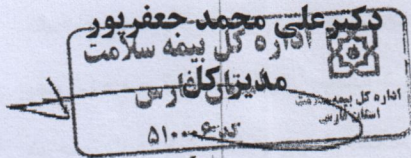 دکتر علی محمد جعفرپور
اداره کل بیمه سلامت
مدیر کل
استان فارس
کد ۵۱۰۰۰۶
اداره کل بیمه سلامت
استان فارس